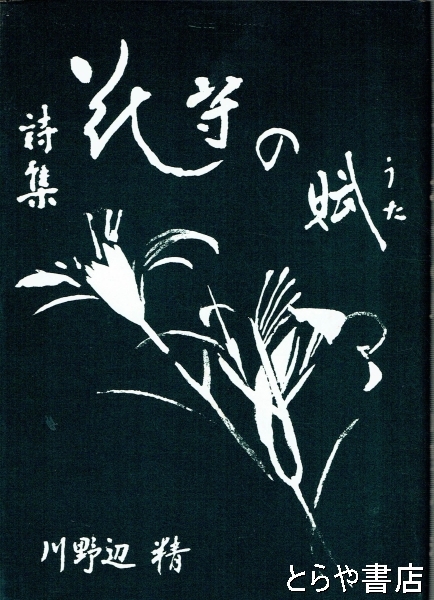 詩集
花守の賦
うた
川野辺 精
とらや書店